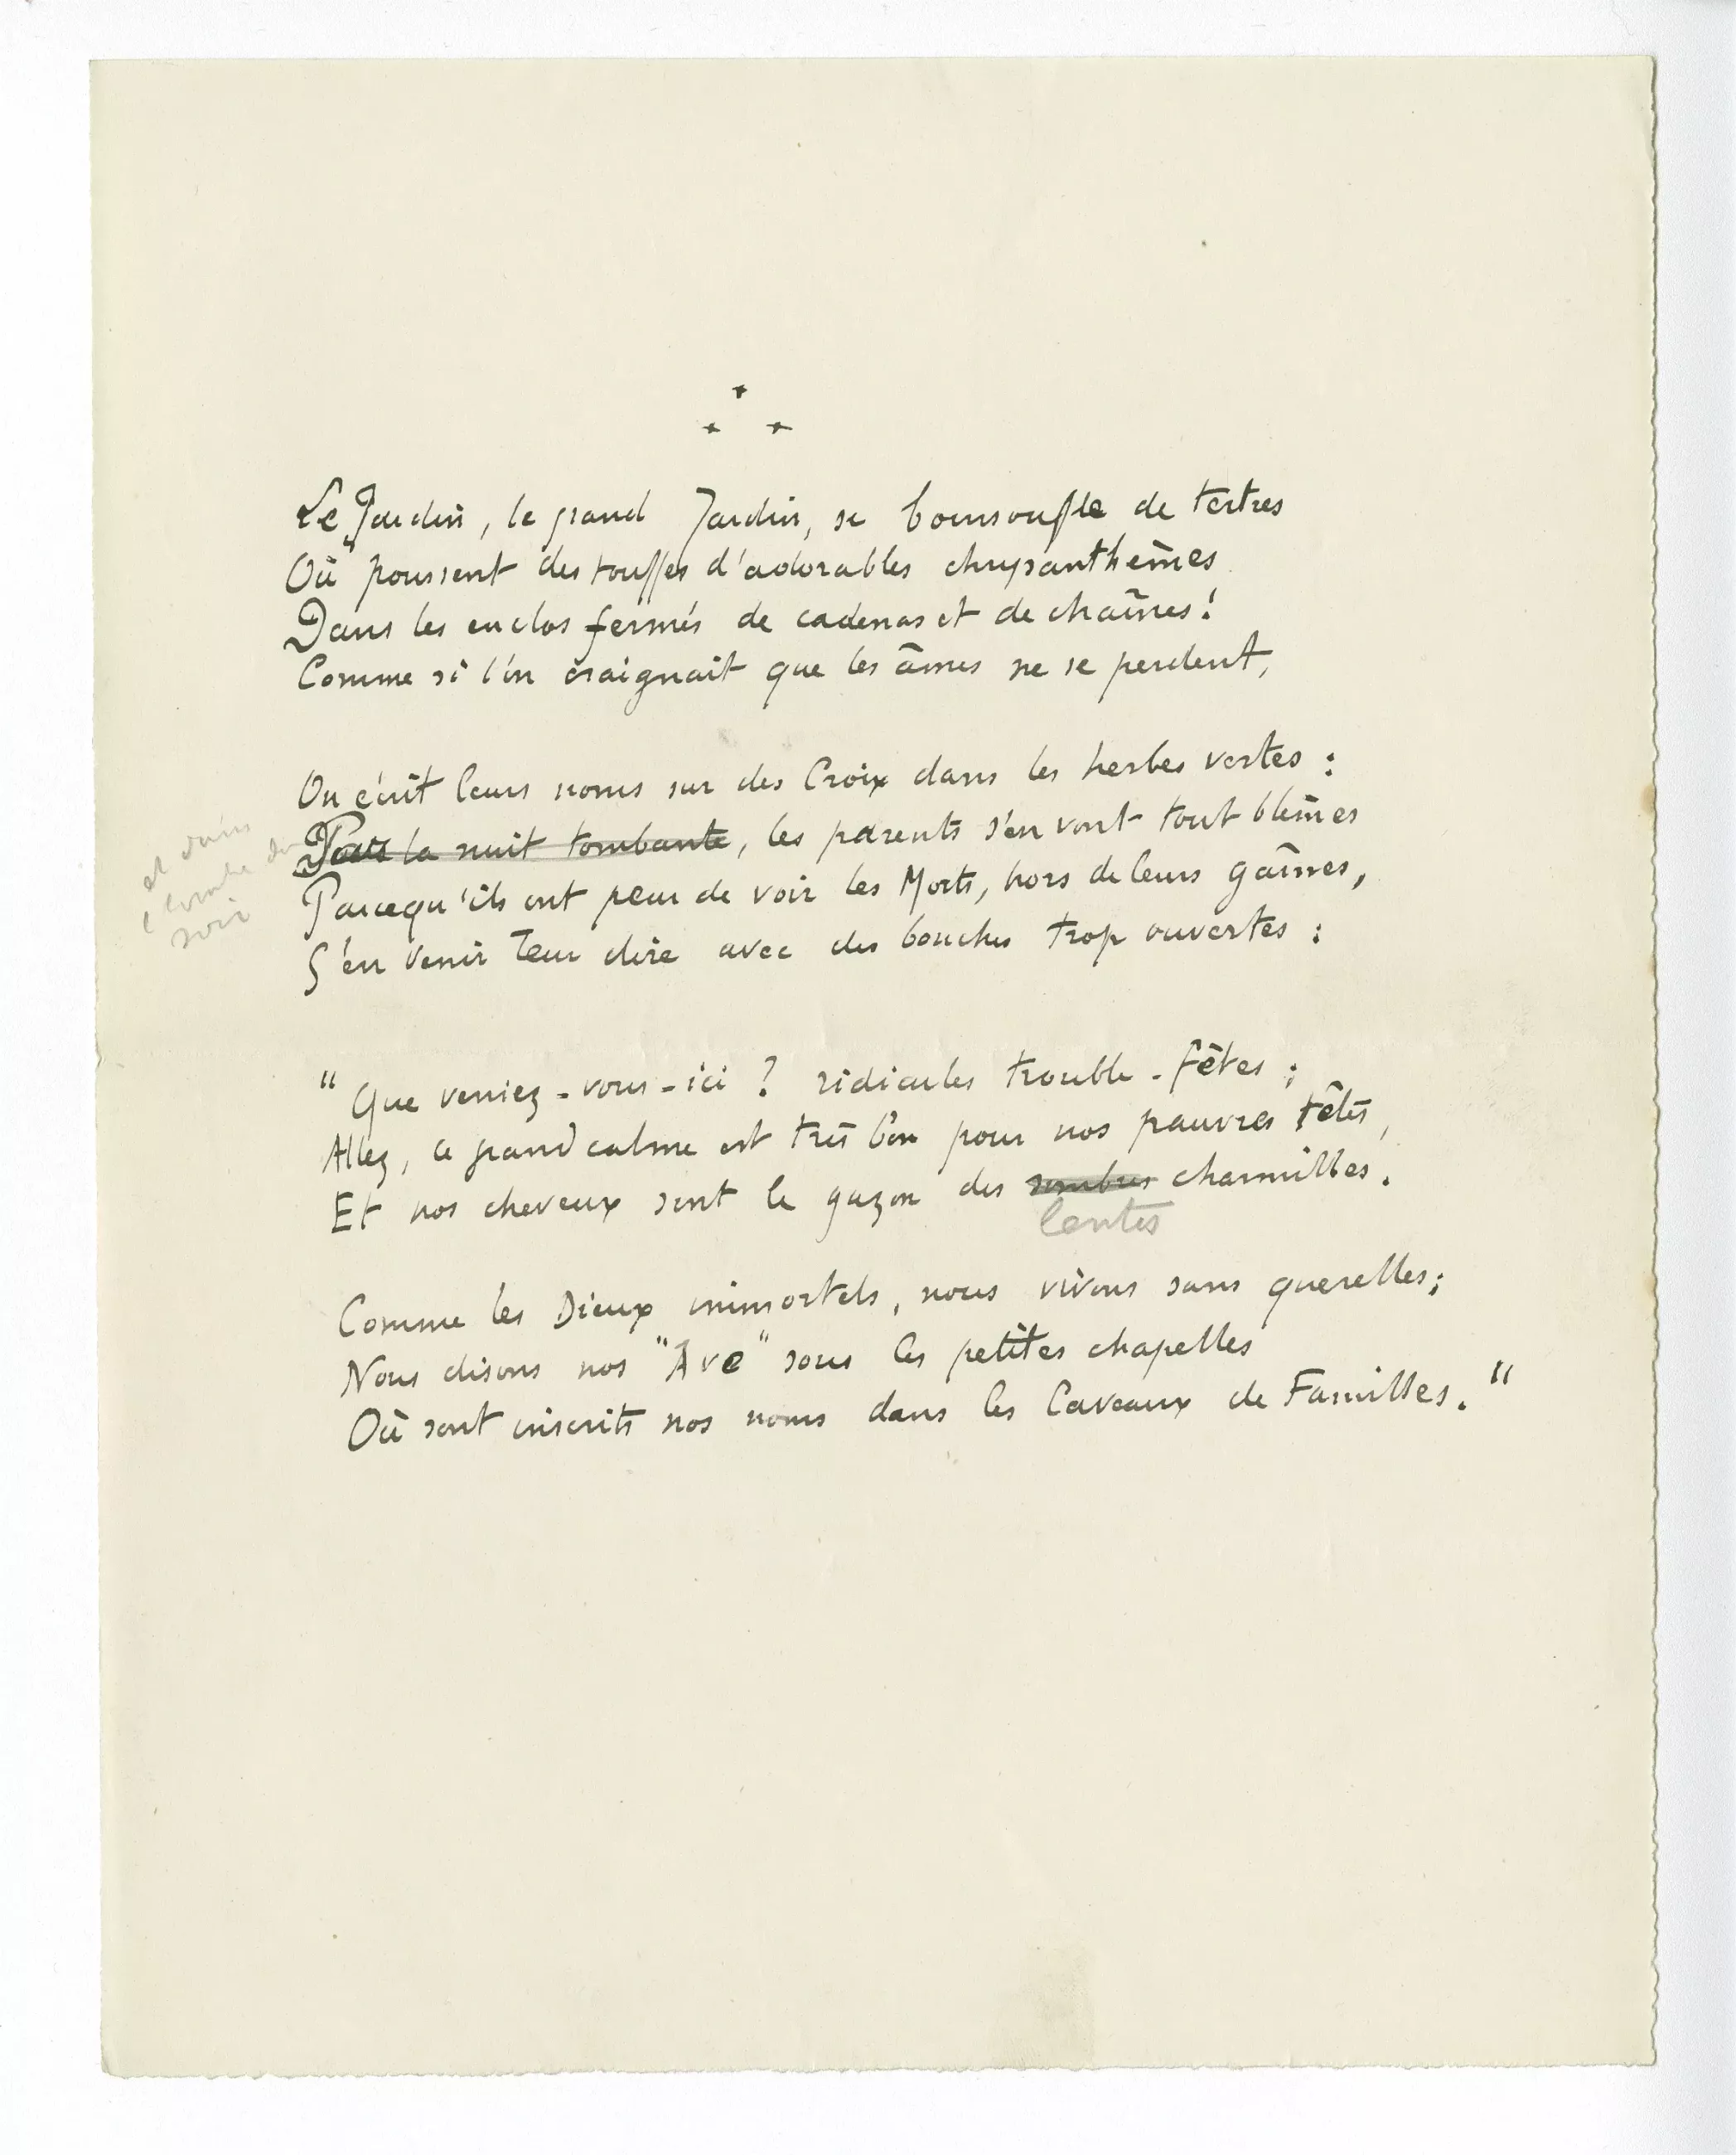 Le Jardin, le grand Jardin, se boursoufle de tertres
Où poussent des touffes d'adorables chrysanthèmes
Dans les enclos fermés de cadenas et de chaînes!
Comme si l'on craignait que les âmes ne se perdent,
On écrit leurs noms sur des Croix dans les herbes vertes :
et dans
l'ombre du
soir
Dans la nuit tombante, les parents s'en vont tout blêmes
Parcequ'ils ont peur de voir les Morts, hors de leurs gaînes,
S'en venir leur dire avec des bouches trop ouvertes :
"Que veniez-vous-ici ? ridicules trouble-fêtes ;
Allez, ce grand calme est très bon pour nos pauvres têtes,
Et nos cheveux sont le gazon des sombres charmilles.
lentes
Comme les Dieux immortels, nous vivons sans querelles;
Nous disons nos "Ave" sous les petites chapelles
Où sont inscrits nos noms dans les Caveaux de Familles."